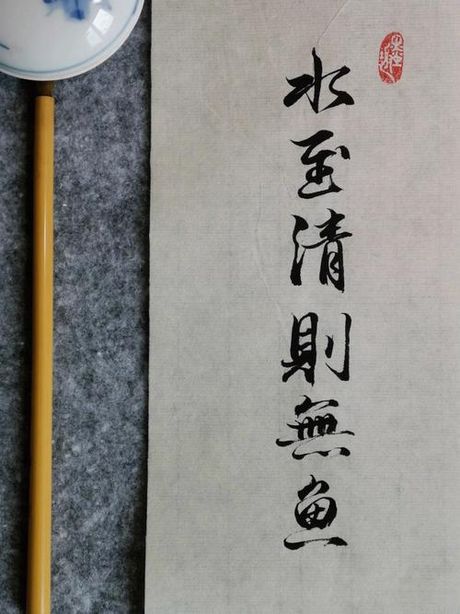 水至清則無魚